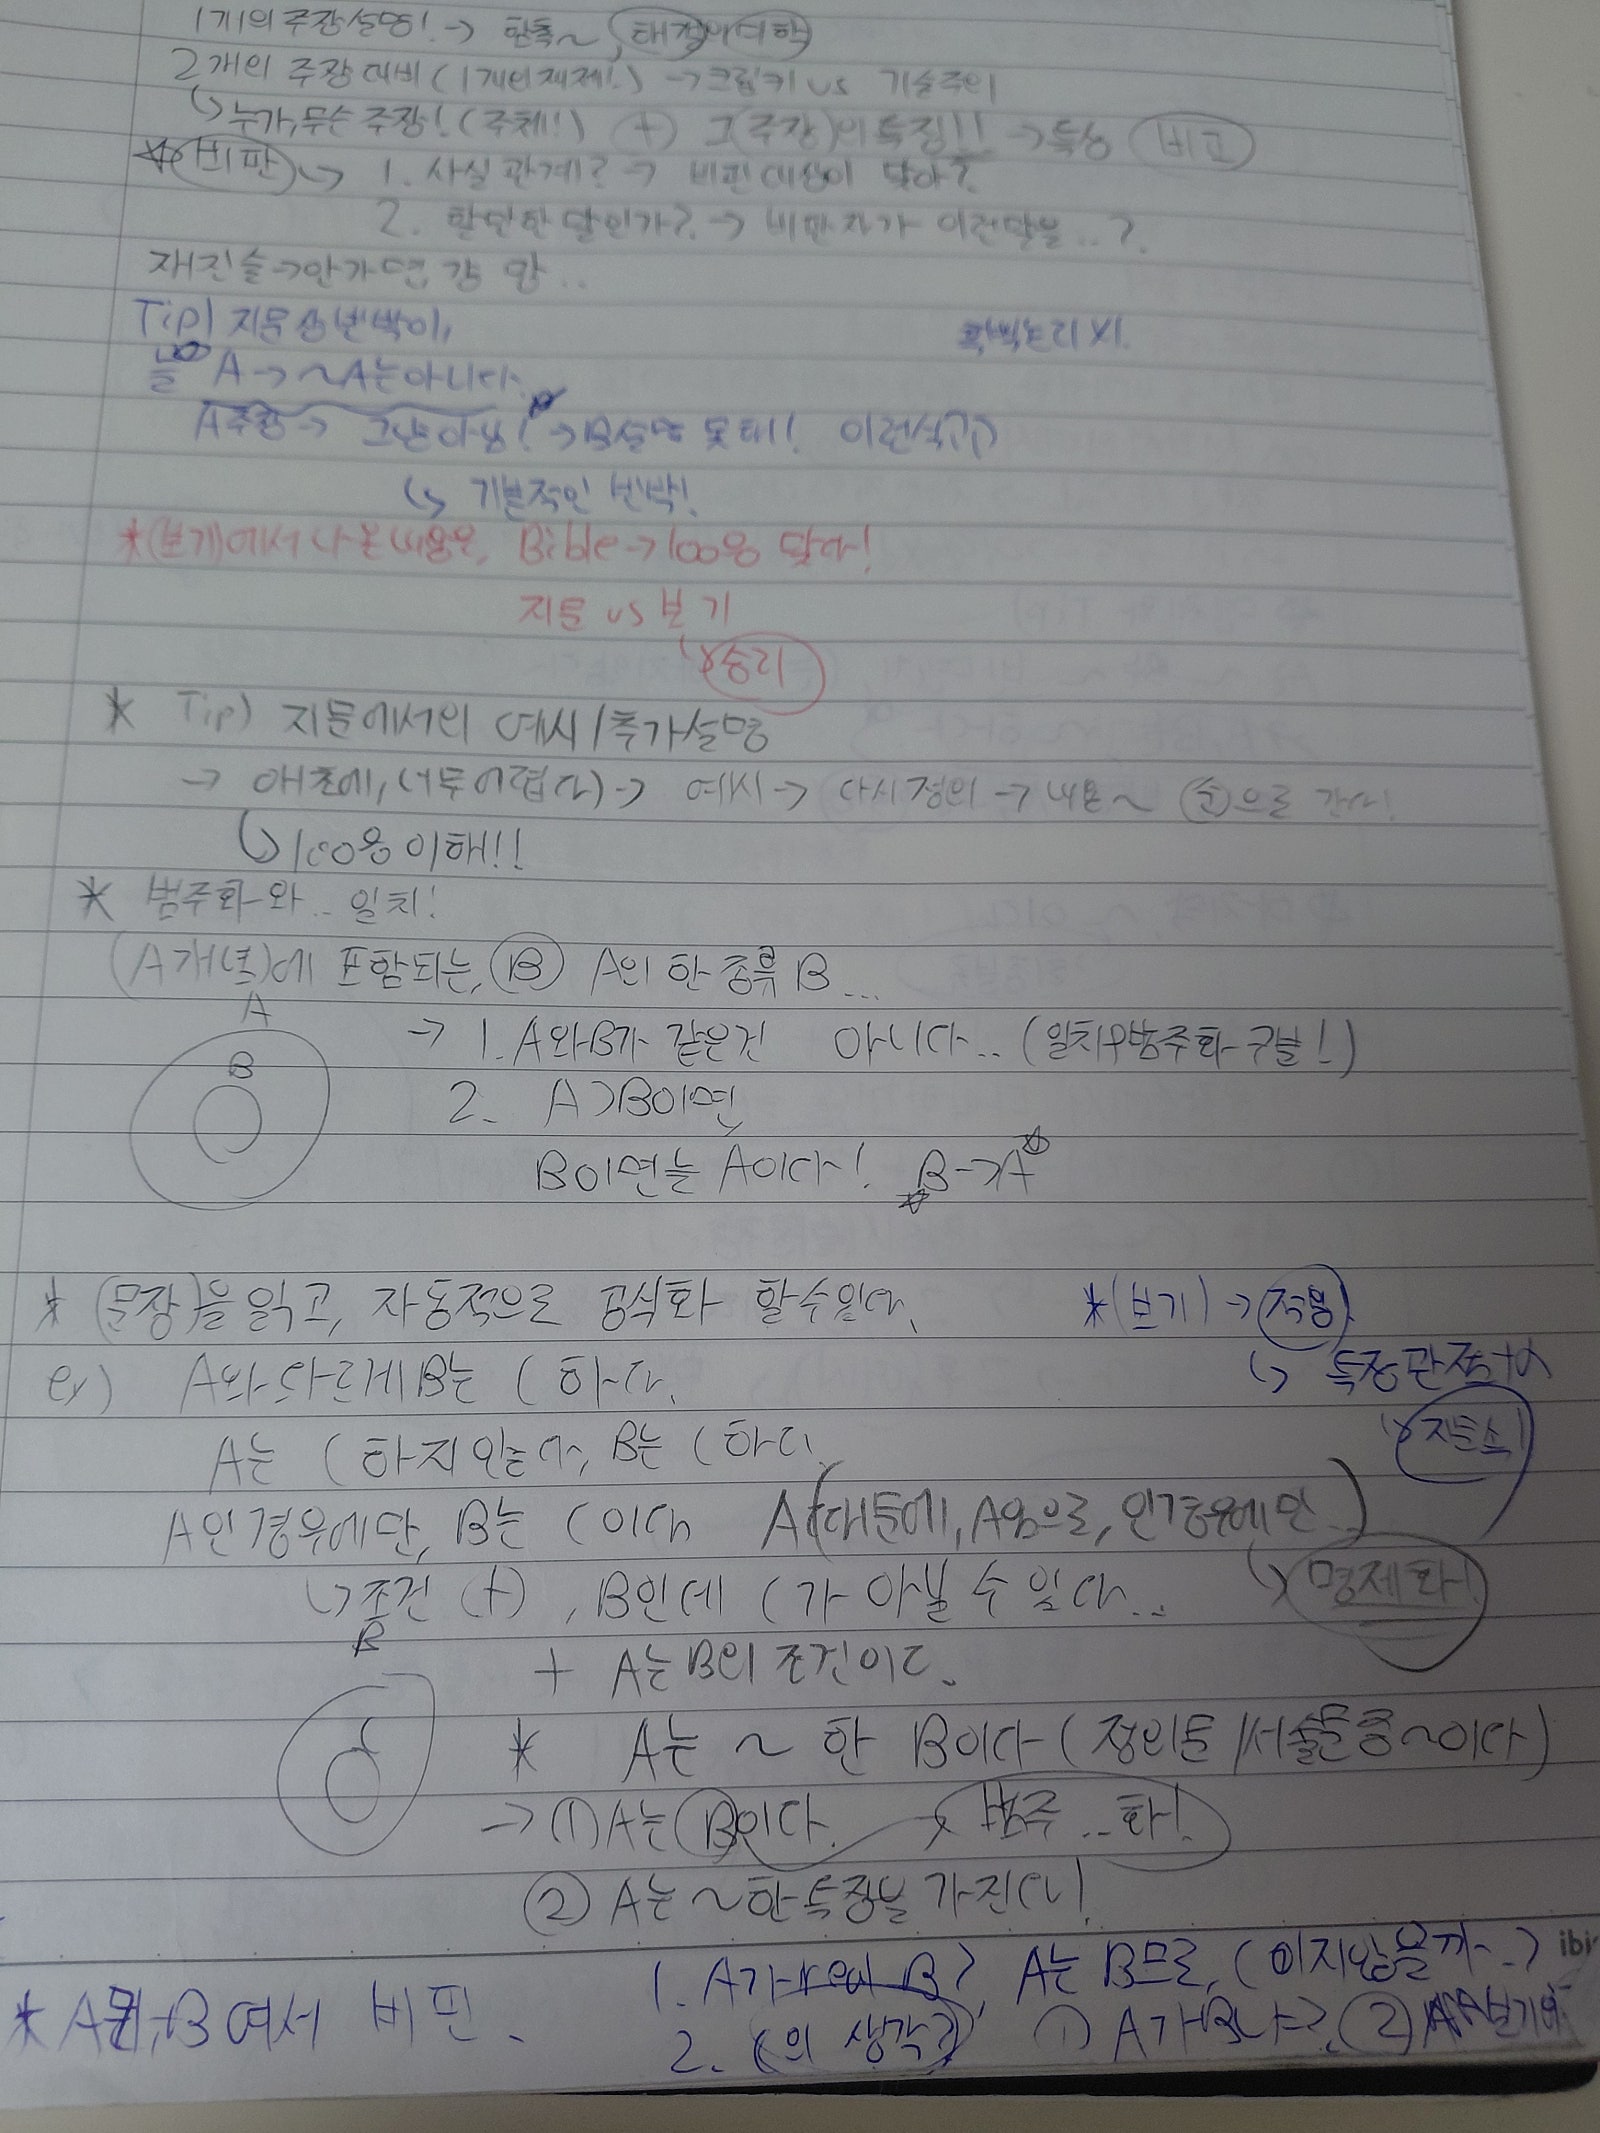 1개의 주장설명! →
2개의 주장 대비 (1개의 제재!) → vs 기술주의
↳ 누가, 무슨 주장! (주체!) (+) 그(주장)의 특징!! → 특성 비교
* 비판 ↳ 1. 사실관계? → 비판대상이 맞아?
2. 할만한 말인가? → 비판자가 이런말을..?
재진술 →
Tip) 지문상 반박이,
A → ~A는 아니다.
A주장 → 그냥 아님! → B설명 못해! 이런식
↳ 기본적인 반박!
*(보기)에서 나온 내용은, Bible → 100% 맞다!
지문 vs 보기
↳ 승리
* Tip) 지문에서의 예시/추가설명
→ 애초에, 너무어렵다) → 예시 → 다시정의 → 내용~ 손으로 간다!
↳ 100% 이해!!
* 범주화와.. 일치!
(A개념)에 포함되는, B A의 한 종류 B...
A
B
→ 1. A와B가 같은건 아니다.. (일치와범주화 구별!)
2. A>B이면
B이면는 A이다! B→A
* (문장)을 읽고, 자동적으로 공식화 할수있다.
*(보기) → 적용
↳ 특정관점+α
ex) A와 다르게 B는 C하다.
A는 C하지 않는다, B는 C하다.
A인경우에만, B는 C이다 A(때문에, A임으로, 인경우에만)
↳ 명제화!
↳ 조건 (+), B인데 C가 아닐 수 있다..
+ A는 B의 조건이다.
B
* A는 ~ 한 B이다 (정의문/서술문중~이다)
→ ① A는 B이다. 범주..화!
② A는 ~한 특징을 가진다!
ibi
* B여서 비판.
1. A가 B?, A는 B므로, C이지않을까..?
2. C의 생각? ① A가 B냐?, ②